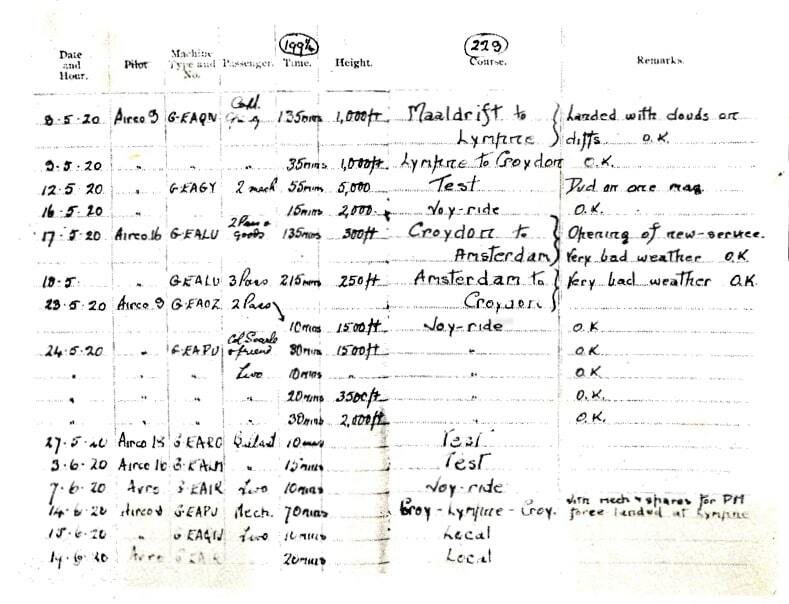 199¼ 223
Date and Hour. Pilot Machine Type and No. Passenger. Time. Height. Course. Remarks.
8.5.20 Airco 9 G-EAQN 135mins 1,000ft Maaldrift to Lympne Landed with clouds on cliffs O.K.
9.5.20 " " " 35mins 1,000ft Lympne to Croydon O.K.
12.5.20 " G-EAGY 2 mech 55mins 5,000 Test Dud on one mag
16.5.20 " " 15mins 2,000 Joy-ride O.K.
17.5.20 Airco 16 G-EALU 2 Pass + goods 135mins 300ft Croydon to Amsterdam Opening of new-service. Very bad weather O.K.
18.5. G-EALU 3 Pass 215mins 250ft Amsterdam to Croydon Very bad weather O.K.
23.5.20 Airco 9 G-EAOZ 2 Pass
10mins 1500ft Joy-ride O.K.
24.5.20 " G-EAPU Col Searle + friend 30mins 1500ft " O.K.
" " " Two 10mins " O.K.
" " " " 20mins 3500ft O.K.
" " " " 30mins 2,000ft " O.K.
27.5.20 Airco 18 Ballast 10mins Test
3.6.20 Airco 16 " 15mins Test
7.6.20 Avro Two 10mins Joy-ride
14.6.20 Airco 9 G-EAPU Mech. 70mins Croy-Lympne-Croy. with mech + spares for PM force landed at Lympne
15.6.20 " Two 10mins Local
20mins Local